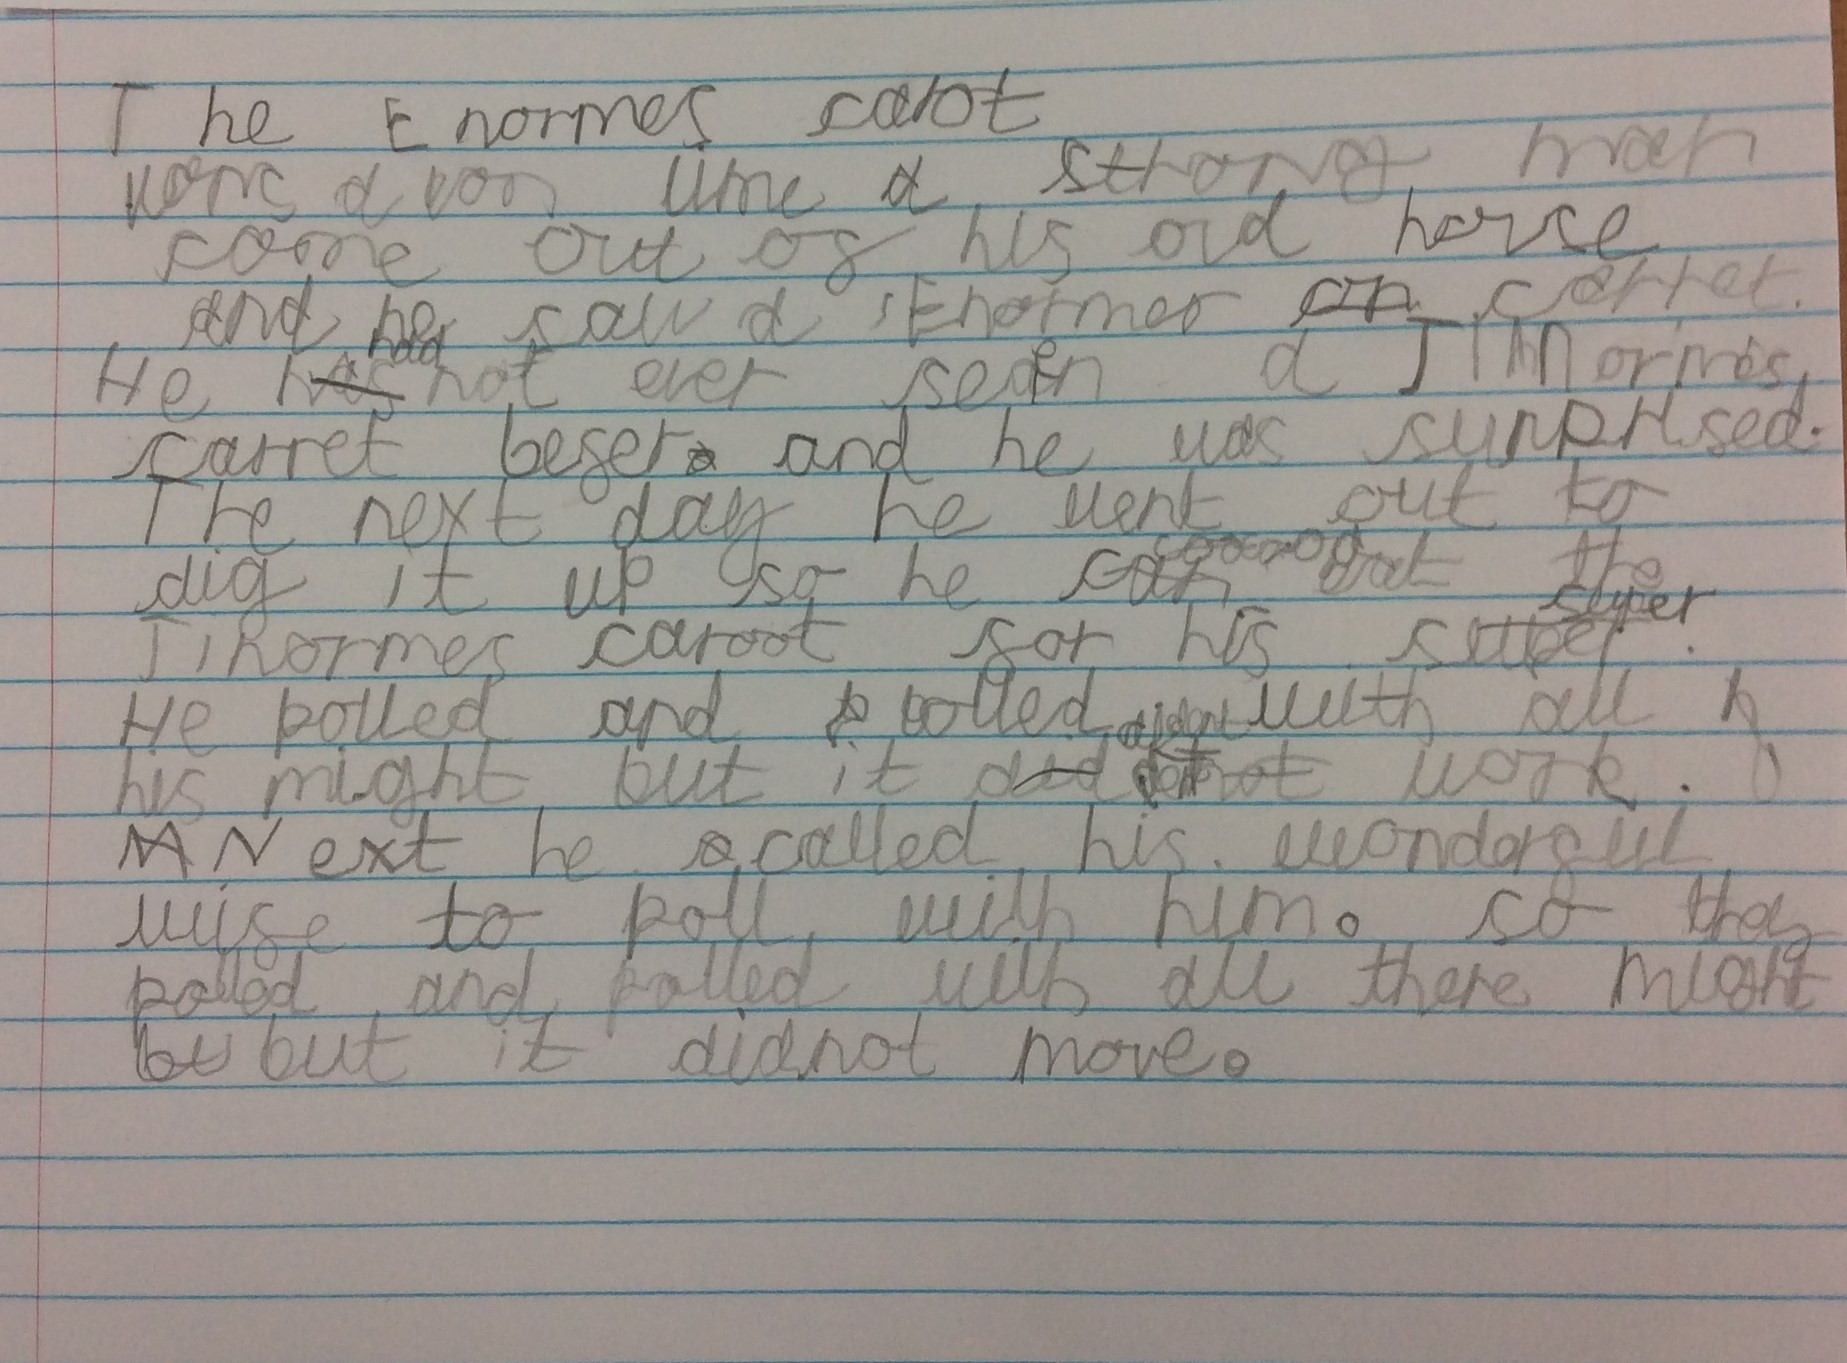 The Enormes carot
wons a pon time a strong man
come out of his old horse
and he saw a Enormer an carret.
He has had not ever seain a JINnormes
carret befer and he was surprised.
The next day he went out to
dig it up so he can eat the
JiNormes caroot for his super.
He polled and p polled with all h
his might but it did didnt not work.
A Next he called his wonderful
wife to poll with him. so they
polled and polled with all there might
bu but it didnot move.